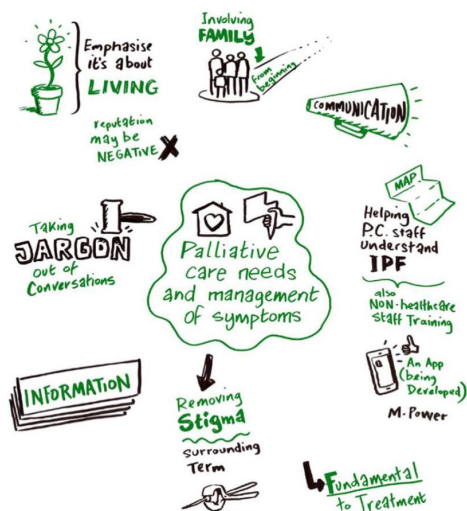 Emphasise
it's about
LIVING
reputation
may be
NEGATIVE
Involving
FAMILY
from
beginning
COMMUNICATION
Taking
JARGON
out of
Conversations
Palliative
care needs
and management
of symptoms
MAP
Helping
P.C. staff
understand
IPF
also
NON-healthcare
Staff Training
An App
(being
Developed)
M-Power
INFORMATION
Removing
Stigma
surrounding
Term
Fundamental
to Treatment